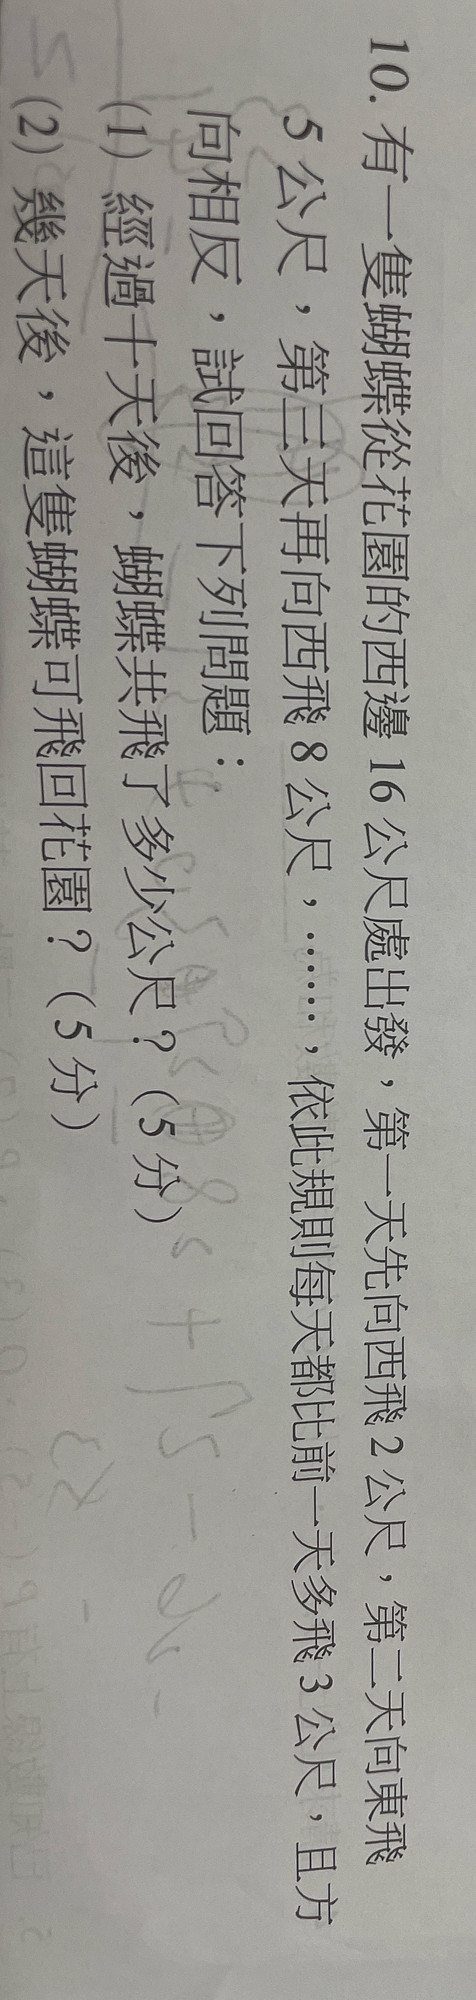 10. 有一隻蝴蝶從花園的西邊 16 公尺處出發，第一天先向西飛 2 公尺，第二天向東飛
5 公尺，第三天再向西飛 8 公尺，……，依此規則每天都比前一天多飛 3 公尺，且方
向相反，試回答下列問題：
(1) 經過十天後，蝴蝶共飛了多少公尺？（5 分）
(2) 幾天後，這隻蝴蝶可飛回花園？（5 分）